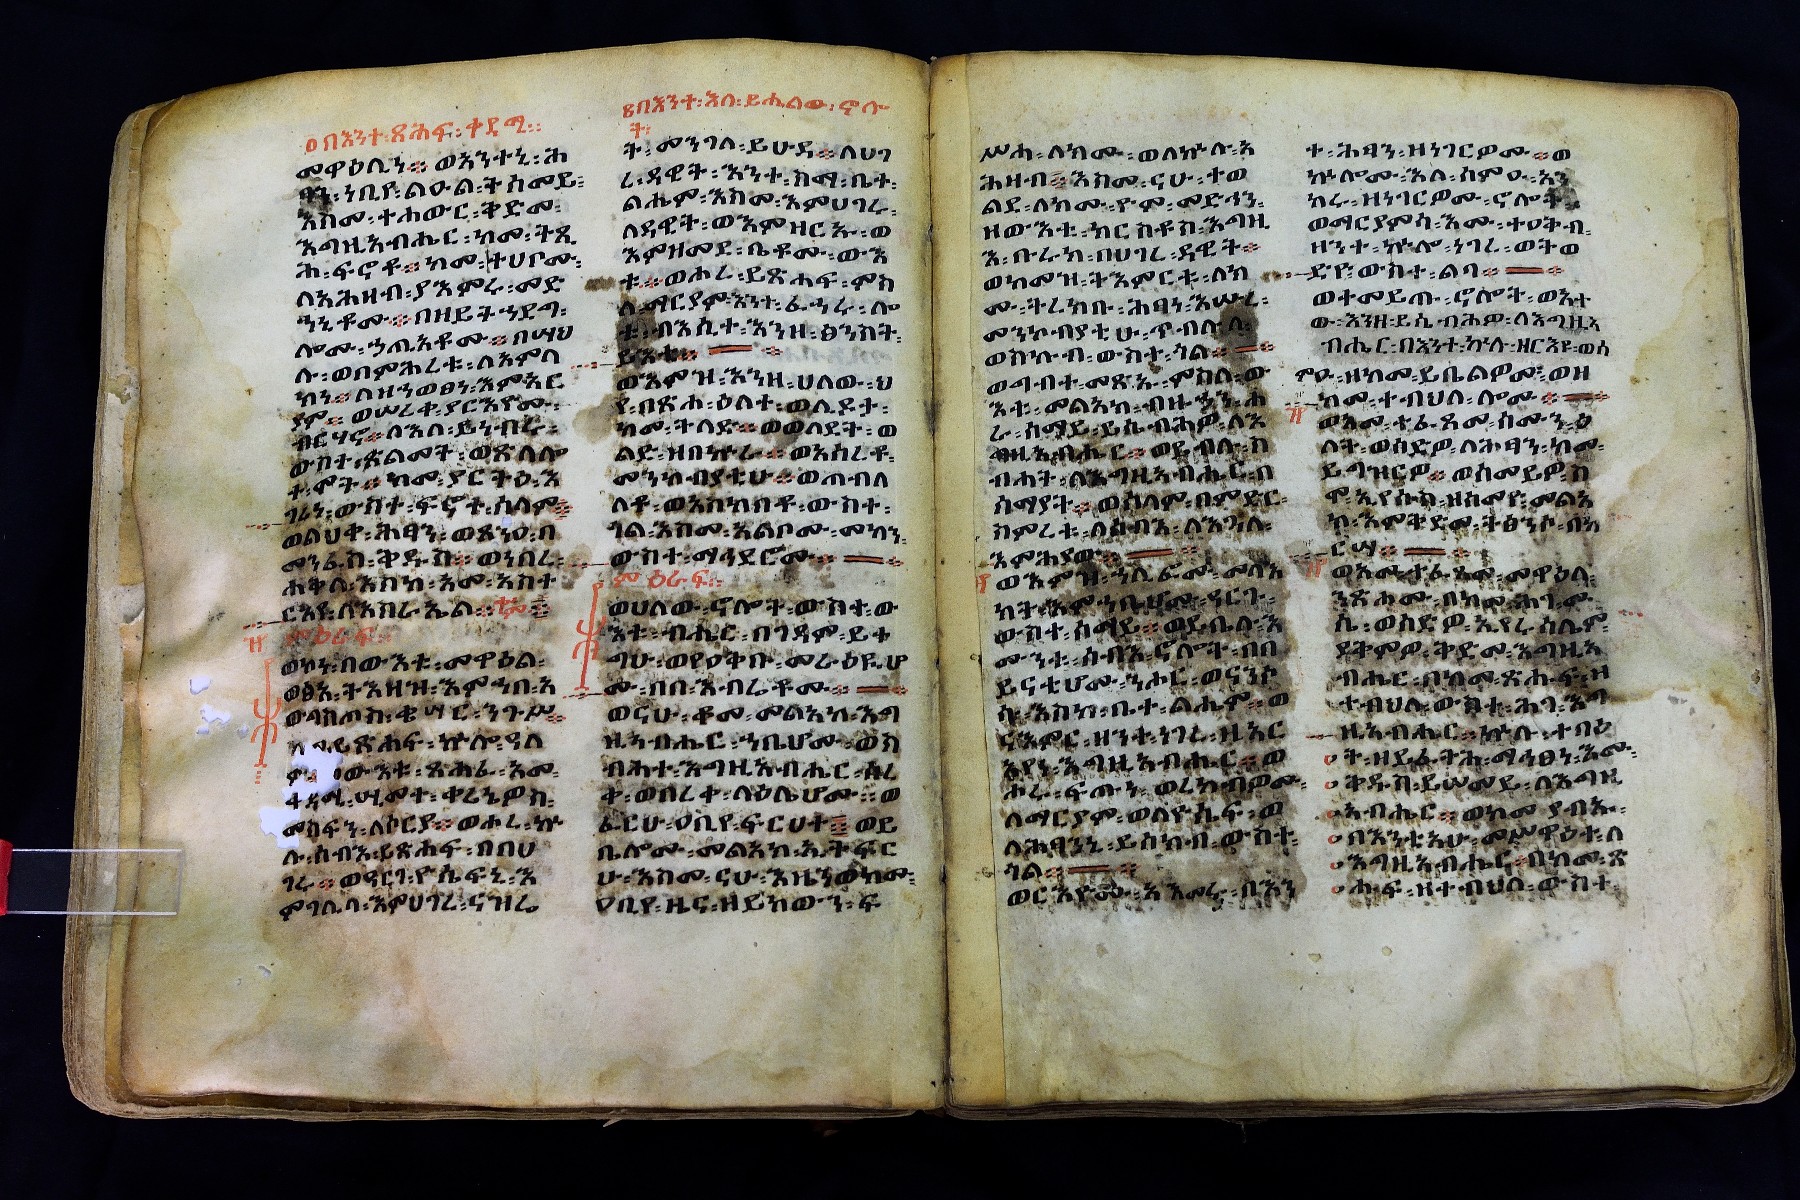 ፩ በእንተ፡ ጸሐፍ፡ ቀዳሚ፡፡
መዋዕሊነ፡፡ ወአንተኒ፡ ሕ
ፃን፡ ነቢየ፡ ልዑል፡ ትሰመይ፡
እስመ፡ ተሐውር፡ ቅድመ፡
እግዚአብሔር፡ ከመ፡ ትጺ
ሕ፡ ፍኖቶ፡፡ ከመ፡ ተሀቦሙ፡
ለአሕዛብ፡ ያእምሩ፡ መድ
ኀኒቶሙ፡፡ በዘይትኀደግ፡
ሎሙ፡ ኃጢአቶሙ፡፡ በሣህ
ሉ፡ ወበምሕረቱ፡ ለአምላ
ክነ፡፡ ለዘሐወፀነ፡ እምአር
ያም፡፡ ወሠረቀ፡ ያርእዮሙ፡
ብርሃኖ፡፡ ለእለ፡ ይነብሩ፡
ውስተ፡ ጽልመት፡ ወጽላሎ
ተ፡ ሞት፡፡ ከመ፡ ያርትዕ፡ እ
ገሪነ፡ ውስተ፡ ፍኖተ፡ ሰላም፡፡
ወልህቀ፡ ሕፃን፡ ወጸንዐ፡ በ
መንፈስ፡ ቅዱስ፡፡ ወነበረ፡
ሐቅለ፡ እስከ፡ አመ፡ አስተ
ርአየ፡ ለእስራኤል፡፡
ምዕራፍ፡፡
ወኮነ፡ በውእቱ፡ መዋዕል፡
ወፅአ፡ ትእዛዝ፡ እምኀበ፡ አ
ውግስጦስ፡ ቄሣር፡ ንጉሥ፡፡
ይጽሐፍ፡ ኵሎ፡ ዓለ
ውእቱ፡ ጸሐፈ፡ አመ፡
ቀዳሚ፡ ሢመተ፡ ቀሬኔዎስ፡
መስፍን፡ ለሶርያ፡፡ ወሖረ፡ ኵ
ሉ፡ ሰብእ፡ ይጽሐፍ፡ በበሀ
ገሩ፡፡ ወዓርገ፡ ዮሴፍኒ፡ እ
ምገሊላ፡ እምሀገረ፡ ናዝሬ
፪ በእንተ፡ እለ፡ ይሔልው፡ ኖሎ
ት፡
ት፡ መንገለ፡ ይሁዳ፡፡ ለሀገ
ረ፡ ዳዊት፡ እንተ፡ ስማ፡ ቤተ፡
ልሔም፡ እስመ፡ እምሀገሩ፡
ለዳዊት፡ ወእምዘርኡ፡ ወ
እምዝመደ፡ ቤቶሙ፡ ውእ
ቱ፡፡ ወሖረ፡ ይጽሐፍ፡ ምስ
ለ፡ ማርያም፡ እንተ፡ ፈኀሩ፡ ሎ
ቱ፡ ብእሲተ፡ እንዘ፡ ፅንስት፡
ይእቲ፡፡
ወእምዝ፡ እንዘ፡ ሀለው፡ ህ
የ፡ በጽሐ፡ ዕለተ፡ ወሊዶታ፡
ከመ፡ ትለድ፡፡ ወወለደት፡ ወ
ልደ፡ ዘበኵራ፡፡ ወአሰረቶ፡
መንኮብያቲሁ፡፡ ወጠብለ
ለቶ፡ ወአስከበቶ፡ ውስተ፡
ጎል፡ እስመ፡ አልቦሙ፡ መካን፡
ውስተ፡ ማኅደሮሙ፡፡
ምዕራፍ፡፡
ወሀለው፡ ኖሎት፡ ውስተ፡ ው
እቱ፡ ብሔር፡ በገዳም፡ ይተ
ግሁ፡ ወየዐቅቡ፡ መራዕዪሆ
ሙ፡ በበ፡ እብሬቶሙ፡፡
ወናሁ፡ ቆመ፡ መልአከ፡ እግ
ዚአብሔር፡ ኀቤሆሙ፡ ወስ
ብሐተ፡ እግዚአብሔር፡ ሠረ
ቀ፡ ወበረቀ፡ ላዕሌሆሙ፡፡ ወ
ፈርሁ፡ ዐቢየ፡ ፍርሀተ፡፡ ወይ
ቤሎሙ፡ መልአክ፡ ኢትፍር
ሁ፡ እስመ፡ ናሁ፡ እዜንወክሙ፡
ዐቢየ፡ ዜና፡ ዘይከውን፡ ፍ
ሥሐ፡ ለክሙ፡ ወለኵሉ፡ አ
ሕዛብ፡፡ እስመ፡ ናሁ፡ ተወ
ልደ፡ ለክሙ፡ ዮም፡ መድኅን፡
ዘውእቱ፡ ክርስቶስ፡ እግዚ
እ፡ ቡሩክ፡ በሀገረ፡ ዳዊት፡፡
ወከመዝ፡ ትእምርቱ፡ ለክ
ሙ፡ ትረክቡ፡ ሕፃነ፡ እሡረ፡
መንኮብያቲሁ፡ ጥብሉለ፡
ወስኩብ፡ ውስተ፡ ጎል፡፡
ወግብተ፡ መጽኡ፡ ምስለ፡ ው
እቱ፡ መልአክ፡ ብዙኃን፡ ሐ
ራ፡ ሰማይ፡ ይሴብሕዎ፡ ለእ
ግዚአብሔር፡፡ ወይብሉ፡ ስ
ብሐት፡ ለእግዚአብሔር፡ በ
ሰማያት፡፡ ወሰላም፡ በምድር፡
ስምረቱ፡ ለሰብእ፡
ወእምዝ፡ ኀሊፎሙ፡ መላእ
ክት፡ እምኀቤሆሙ፡ ዓርጉ፡
ውስተ፡ ሰማይ፡፡ ወይቤሉ፡ እ
ሙንቱ፡ ሰብእ፡ ኖሎት፡ በበ
ይናቲሆሙ፡ ንሑር፡ ወናንሶ
ሱ፡ እስከ፡ ቤተ፡ ልሔም፡፡ ወ
ናእምር፡ ዘንተ፡ ነገረ፡ ዘአር
አየነ፡ እግዚአብሔር፡፡ ወ
ሖሩ፡ ፍጡነ፡ ወረከብዎሙ፡
ለማርያም፡ ወለዮሴፍ፡ ወ
ለሕፃንኒ፡ ይሰክብ፡ ውስተ፡
ጎል፡፡
ወርእዮሙ፡ አእመሩ፡ በእን
ተ፡ ሕፃን፡ ዘነገርዎሙ፡፡ ወ
ኵሎሙ፡ እለ፡ ሰምዑ፡ አን
ከሩ፡ ዘነገርዎሙ፡ ኖሎት፡
ወማርያምሰ፡ እሙ፡ ተዐቅብ፡
ዘንተ፡ ኵሎ፡ ነገረ፡ ወትወ
ድዮ፡ ውስተ፡ ልባ፡፡
ወተመይጡ፡ ኖሎት፡ ወአተ
ው፡ እንዘ፡ ይሴብሕዎ፡ ለእግዚአ
ብሔር፡ በእንተ፡ ኵሉ፡ ዘርእዩ፡ ወሰ
ምዑ፡ ዘከመ፡ ይቤልዎሙ፡፡ ወዘ
ከመ፡ ተብህለ፡ ሎሙ፡፡
ወአመ፡ ተፈጸመ፡ ሰሙን፡ ዕ
ለት፡ ወሰድዎ፡ ለሕፃን፡ ከመ፡
ይግዝርዎ፡፡ ወሰመይዎ፡ ስ
ሞ፡ ኢየሱስ፡ ዘሰመዮ፡ መልአ
ክ፡ እምቅድመ፡ ትፅንሶ፡ በከ
ርሣ፡፡
ወአመ፡ ተፈጸመ፡ መዋዕለ፡
ንጽሖሙ፡ በከመ፡ ሕገ፡ ሙ
ሴ፡ ወሰድዎ፡ ኢየሩሳሌም፡
ያቅምዎ፡ ቅድመ፡ እግዚአ
ብሔር፡ በከመ፡ ጽሑፍ፡ ዘ
ተብህለ፡ ውስተ፡ ሕገ፡ እግ
ዚአብሔር፡፡ ኵሉ፡ ተባዕ
ት፡ ዘይፈትሕ፡ ማኅፀነ፡ እሙ፡
ቅዱስ፡ ይሠመይ፡ ለእግዚ
አብሔር፡፡ ወከመ፡ ያብኡ፡
በእንቲአሁ፡ መሥዋዕተ፡ ለ
እግዚአብሔር፡፡ በከመ፡ ጽ
ሑፍ፡ ዘተብህለ፡ ውስተ፡